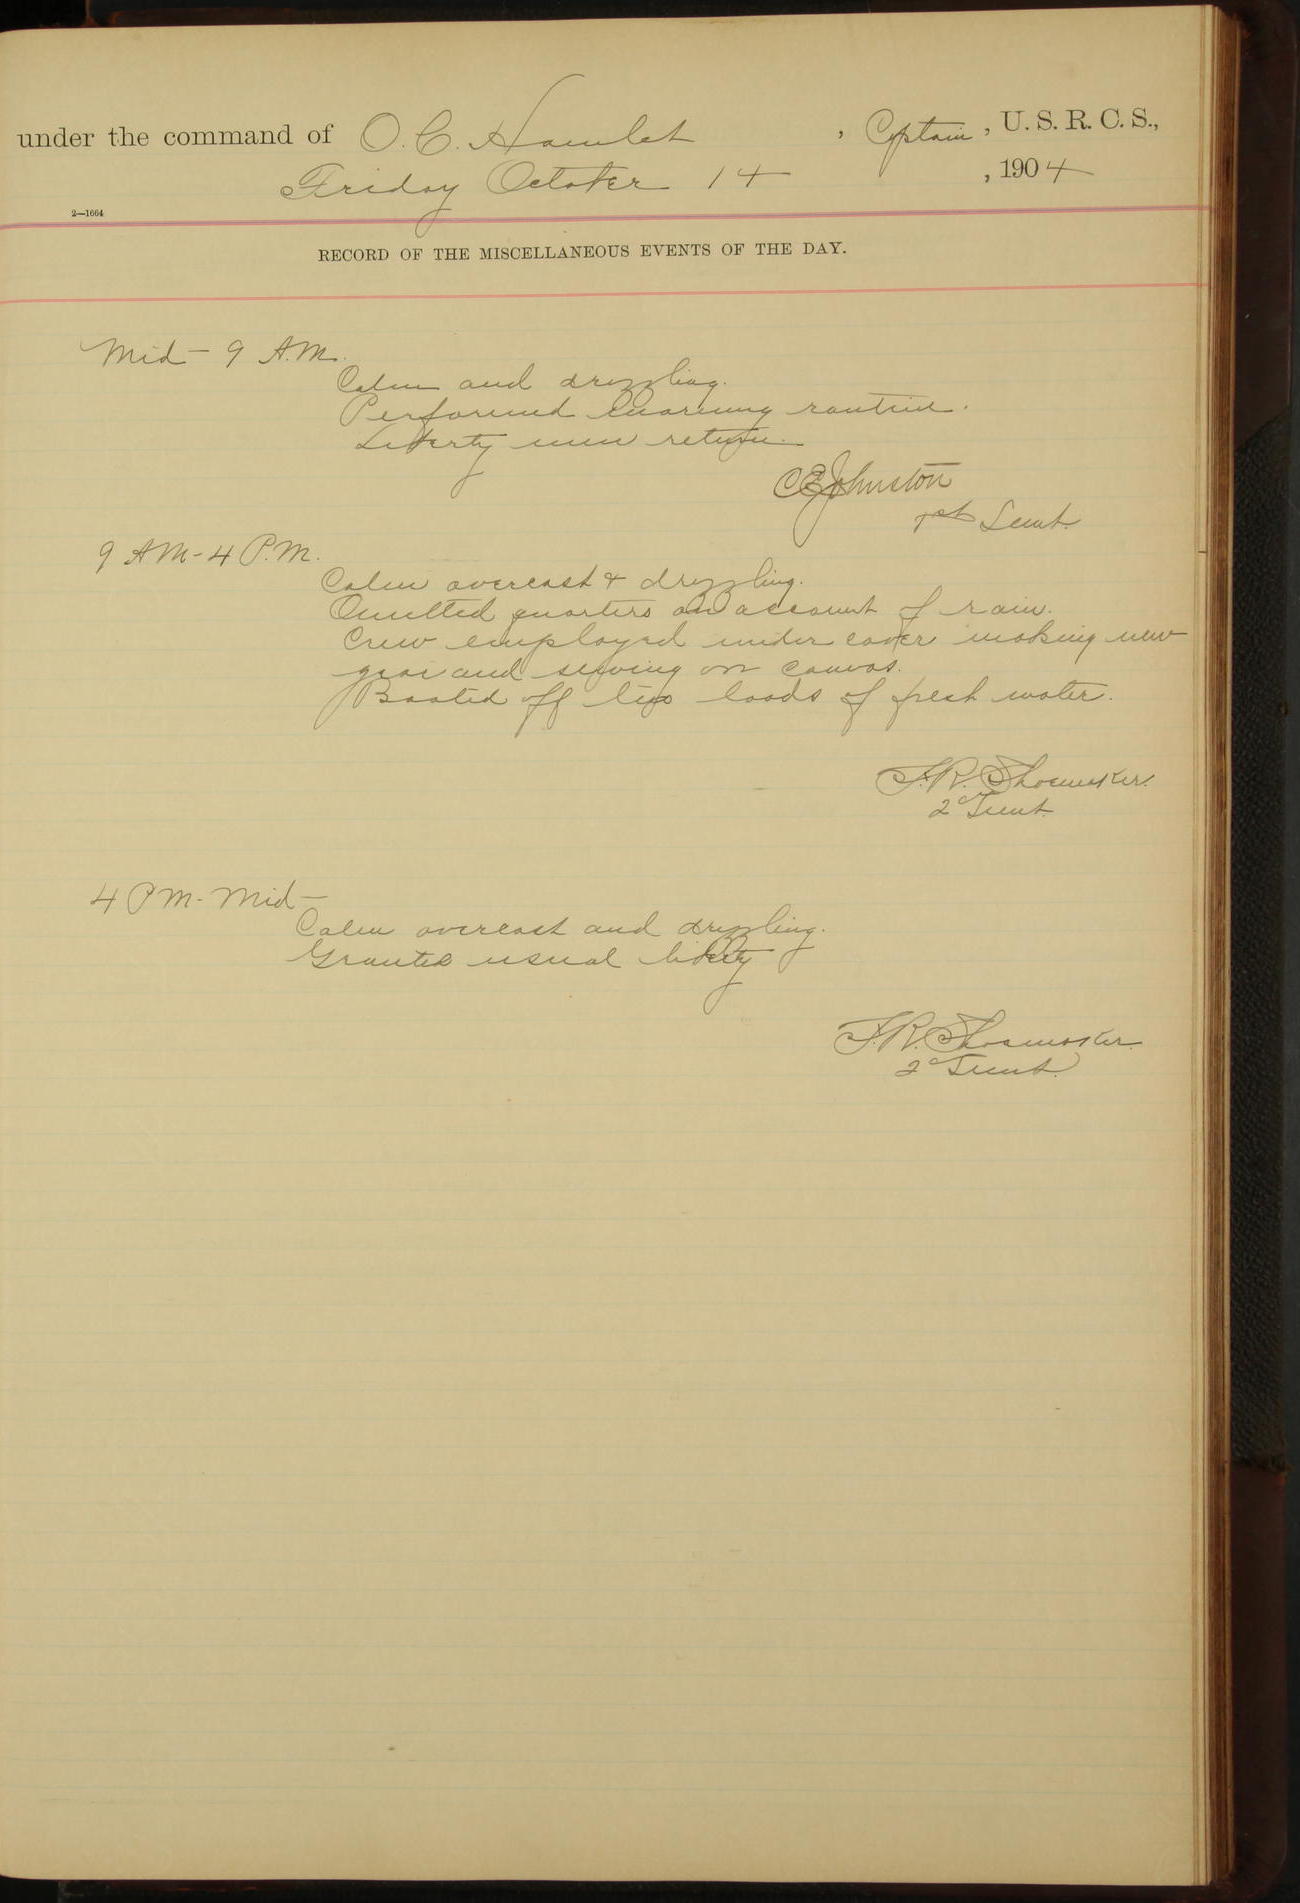 under the command of O. C. Hamlet, Captain, U. S. R. C. S.,
Friday October 14, 1904
2—1664
RECORD OF THE MISCELLANEOUS EVENTS OF THE DAY.
Mid - 9 A.M.
Calm and drizzling.
Performed morning routine.
Liberty men return.
C E Johnston
1st Lieut.
9 AM - 4 P.M.
Calm overcast & drizzling.
Omitted quarters on account of rain.
Crew employed under cover making new
gear and sewing on canvas.
Boated off two loads of fresh water.
F. R. Shoemaker.
2d Lieut.
4 PM - Mid -
Calm overcast and drizzling.
Granted usual liberty
F. R. Shoemaker
2d Lieut.